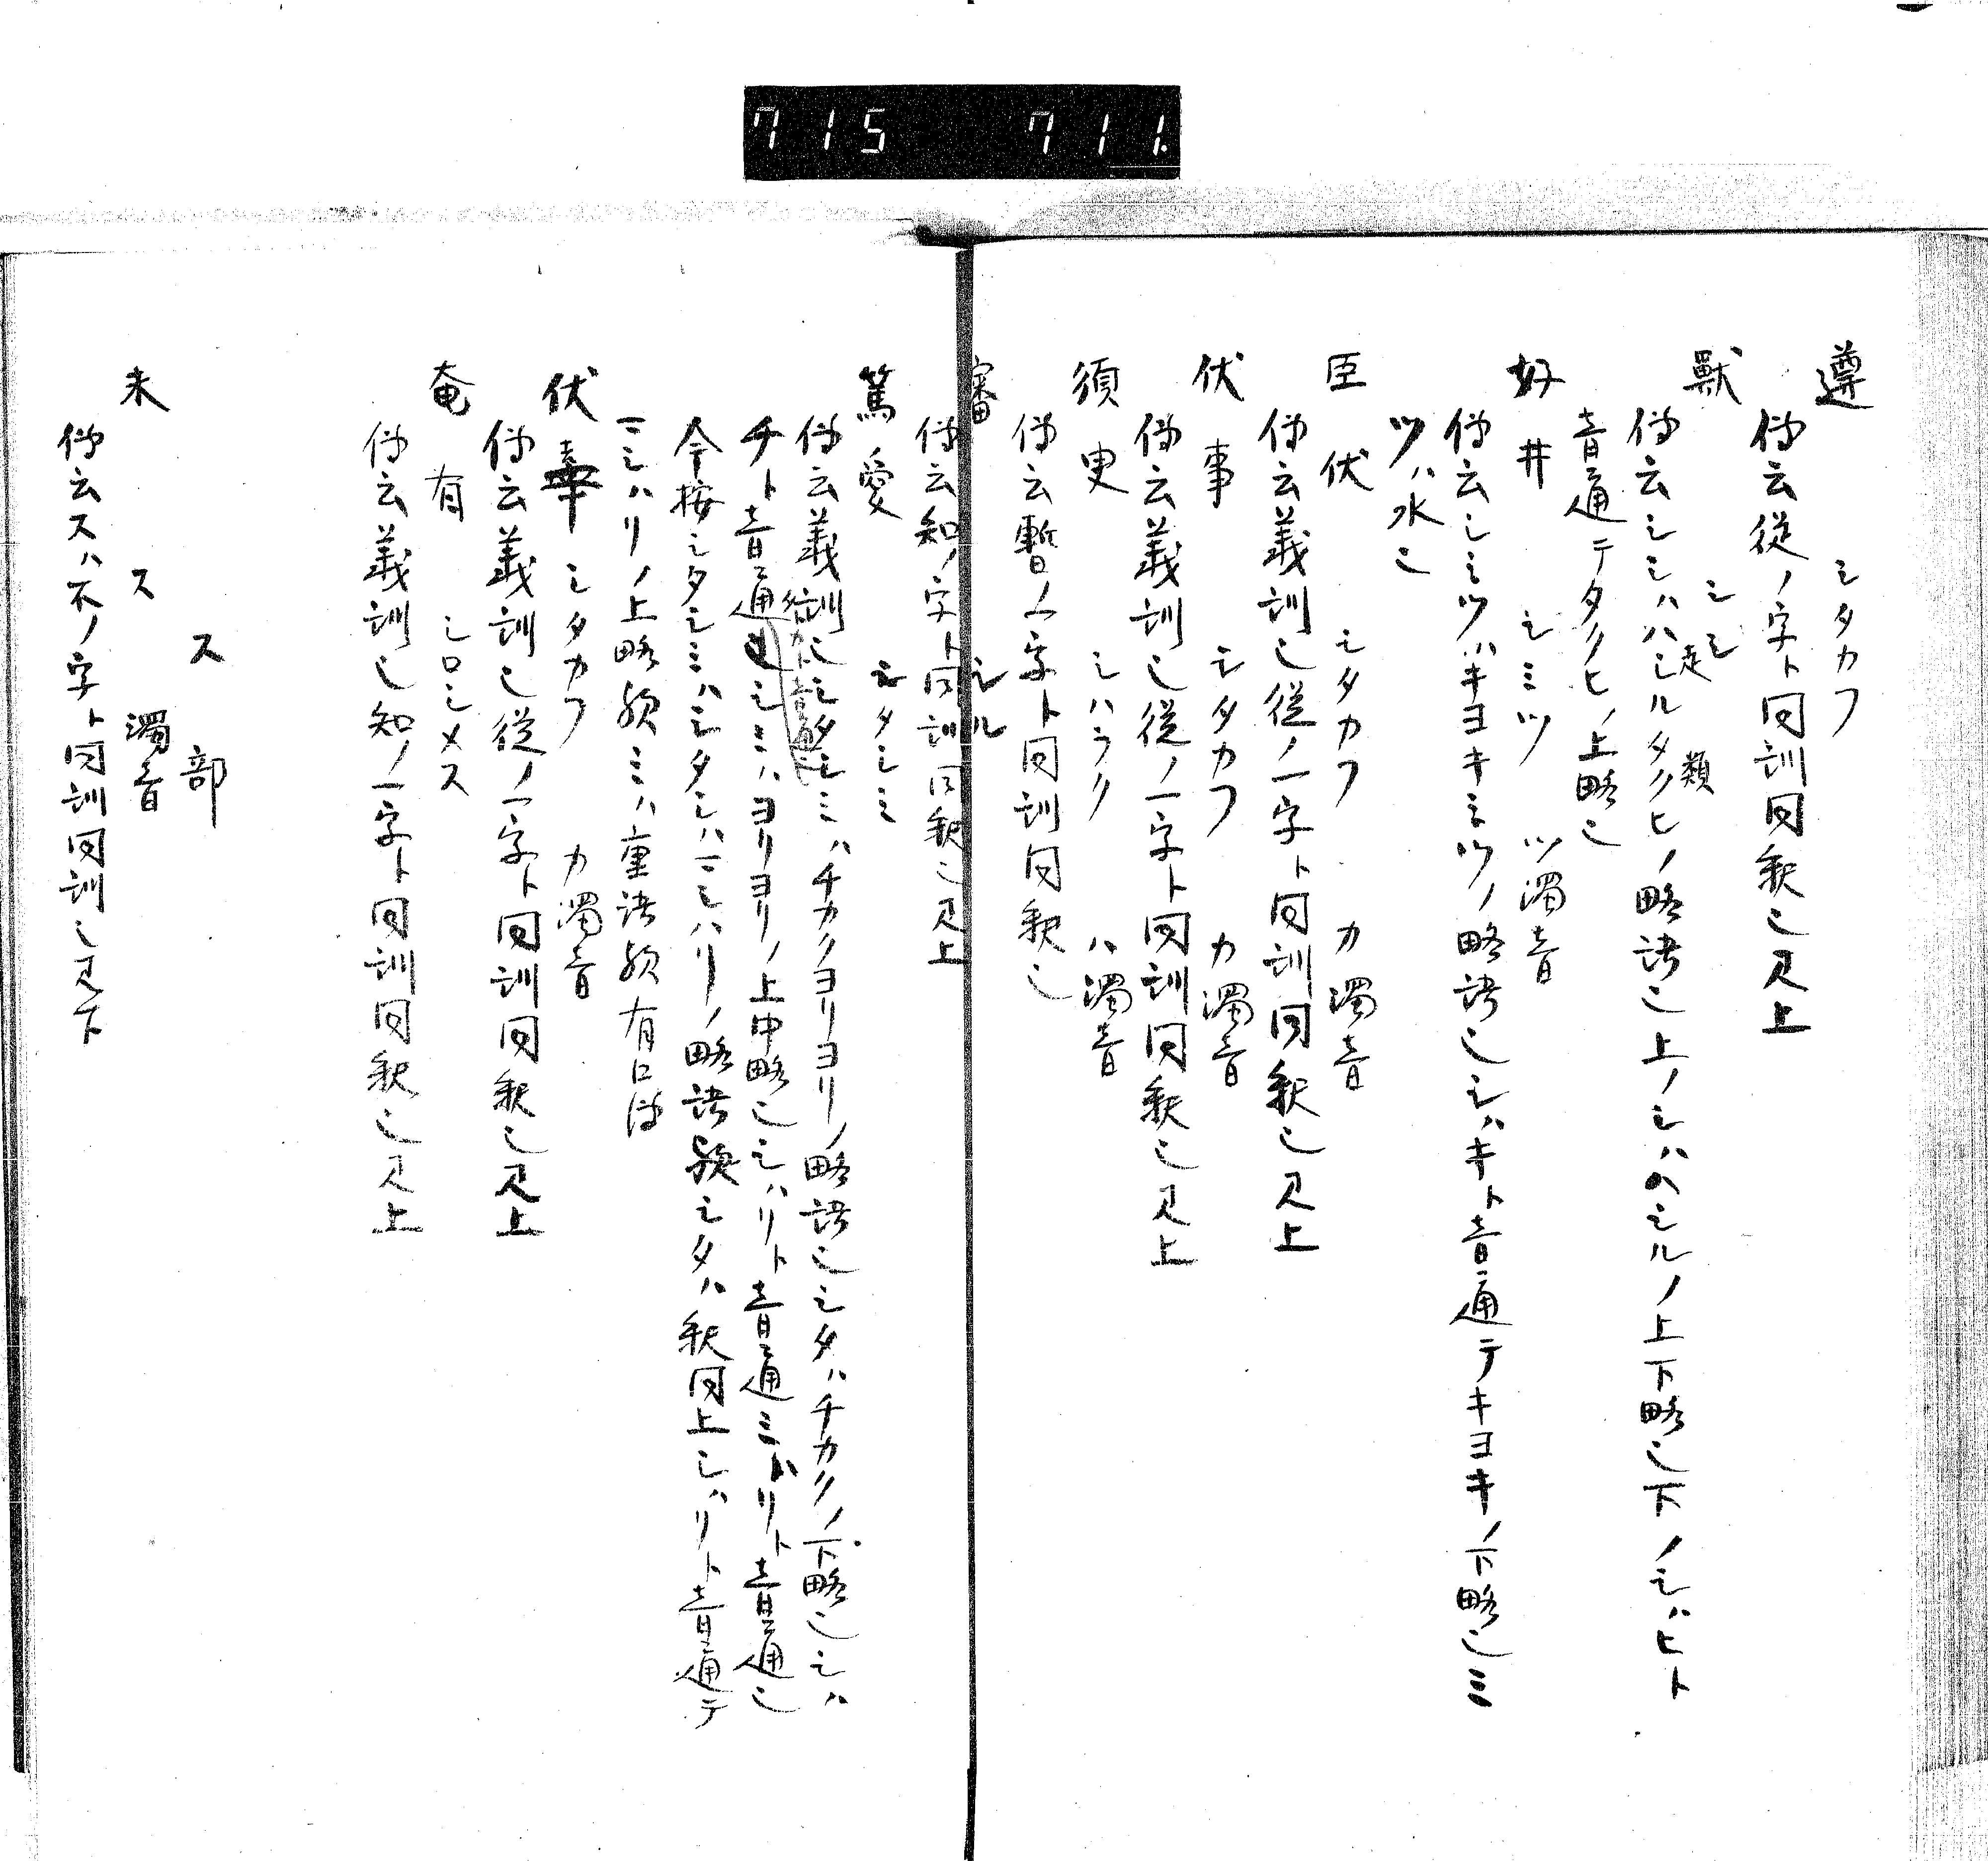 715 711.
遵 シタカフ
傳云従ノ字ト同訓同釈也见上
獸 シシ
傳云シシハハシルタクヒノ略語也上ノシハハシルノ上下略也下ノシハヒト
走 類
音通テタクヒノ上略也
好井 シミツ ツ濁音
傳云シミツハキヨキミツノ略語也シハキト音通テキヨキノ下略也ミ
ツハ水也
臣伏 シタカフ カ濁音
傳云義訓也従ノ一字ト同訓同釈也见上
伏事 シタカフ カ濁音
傳云義訓也従ノ一字ト同訓同釈也见上
須臾 シハラク ハ濁音
傳云暫ノ字ト同訓同釈也
審 シル
傳云知ノ字ト同訓同釈也见上
篤愛 シタシミ
傳云義訓也シタシミハチカクヨリヨリノ略語也シタハチカクノ下略也シハ
チト音通シミハヨリヨリノ上中略也シハリト音通ミハリト音通也
今按シタシミハシタシハ一シハリノ略語歟シタハ釈同上シハリト音通テ
一シハリノ上略歟ミハ重語歟有口傳
伏奉 シタカフ カ濁音
傳云義訓也従ノ一字ト同訓同釈也见上
奄有 シロシメス
傳云義訓也知ノ一字ト同訓同釈也见上
ス部
未 ス 濁音
傳云スハ不ノ字ト同訓同訓也见下